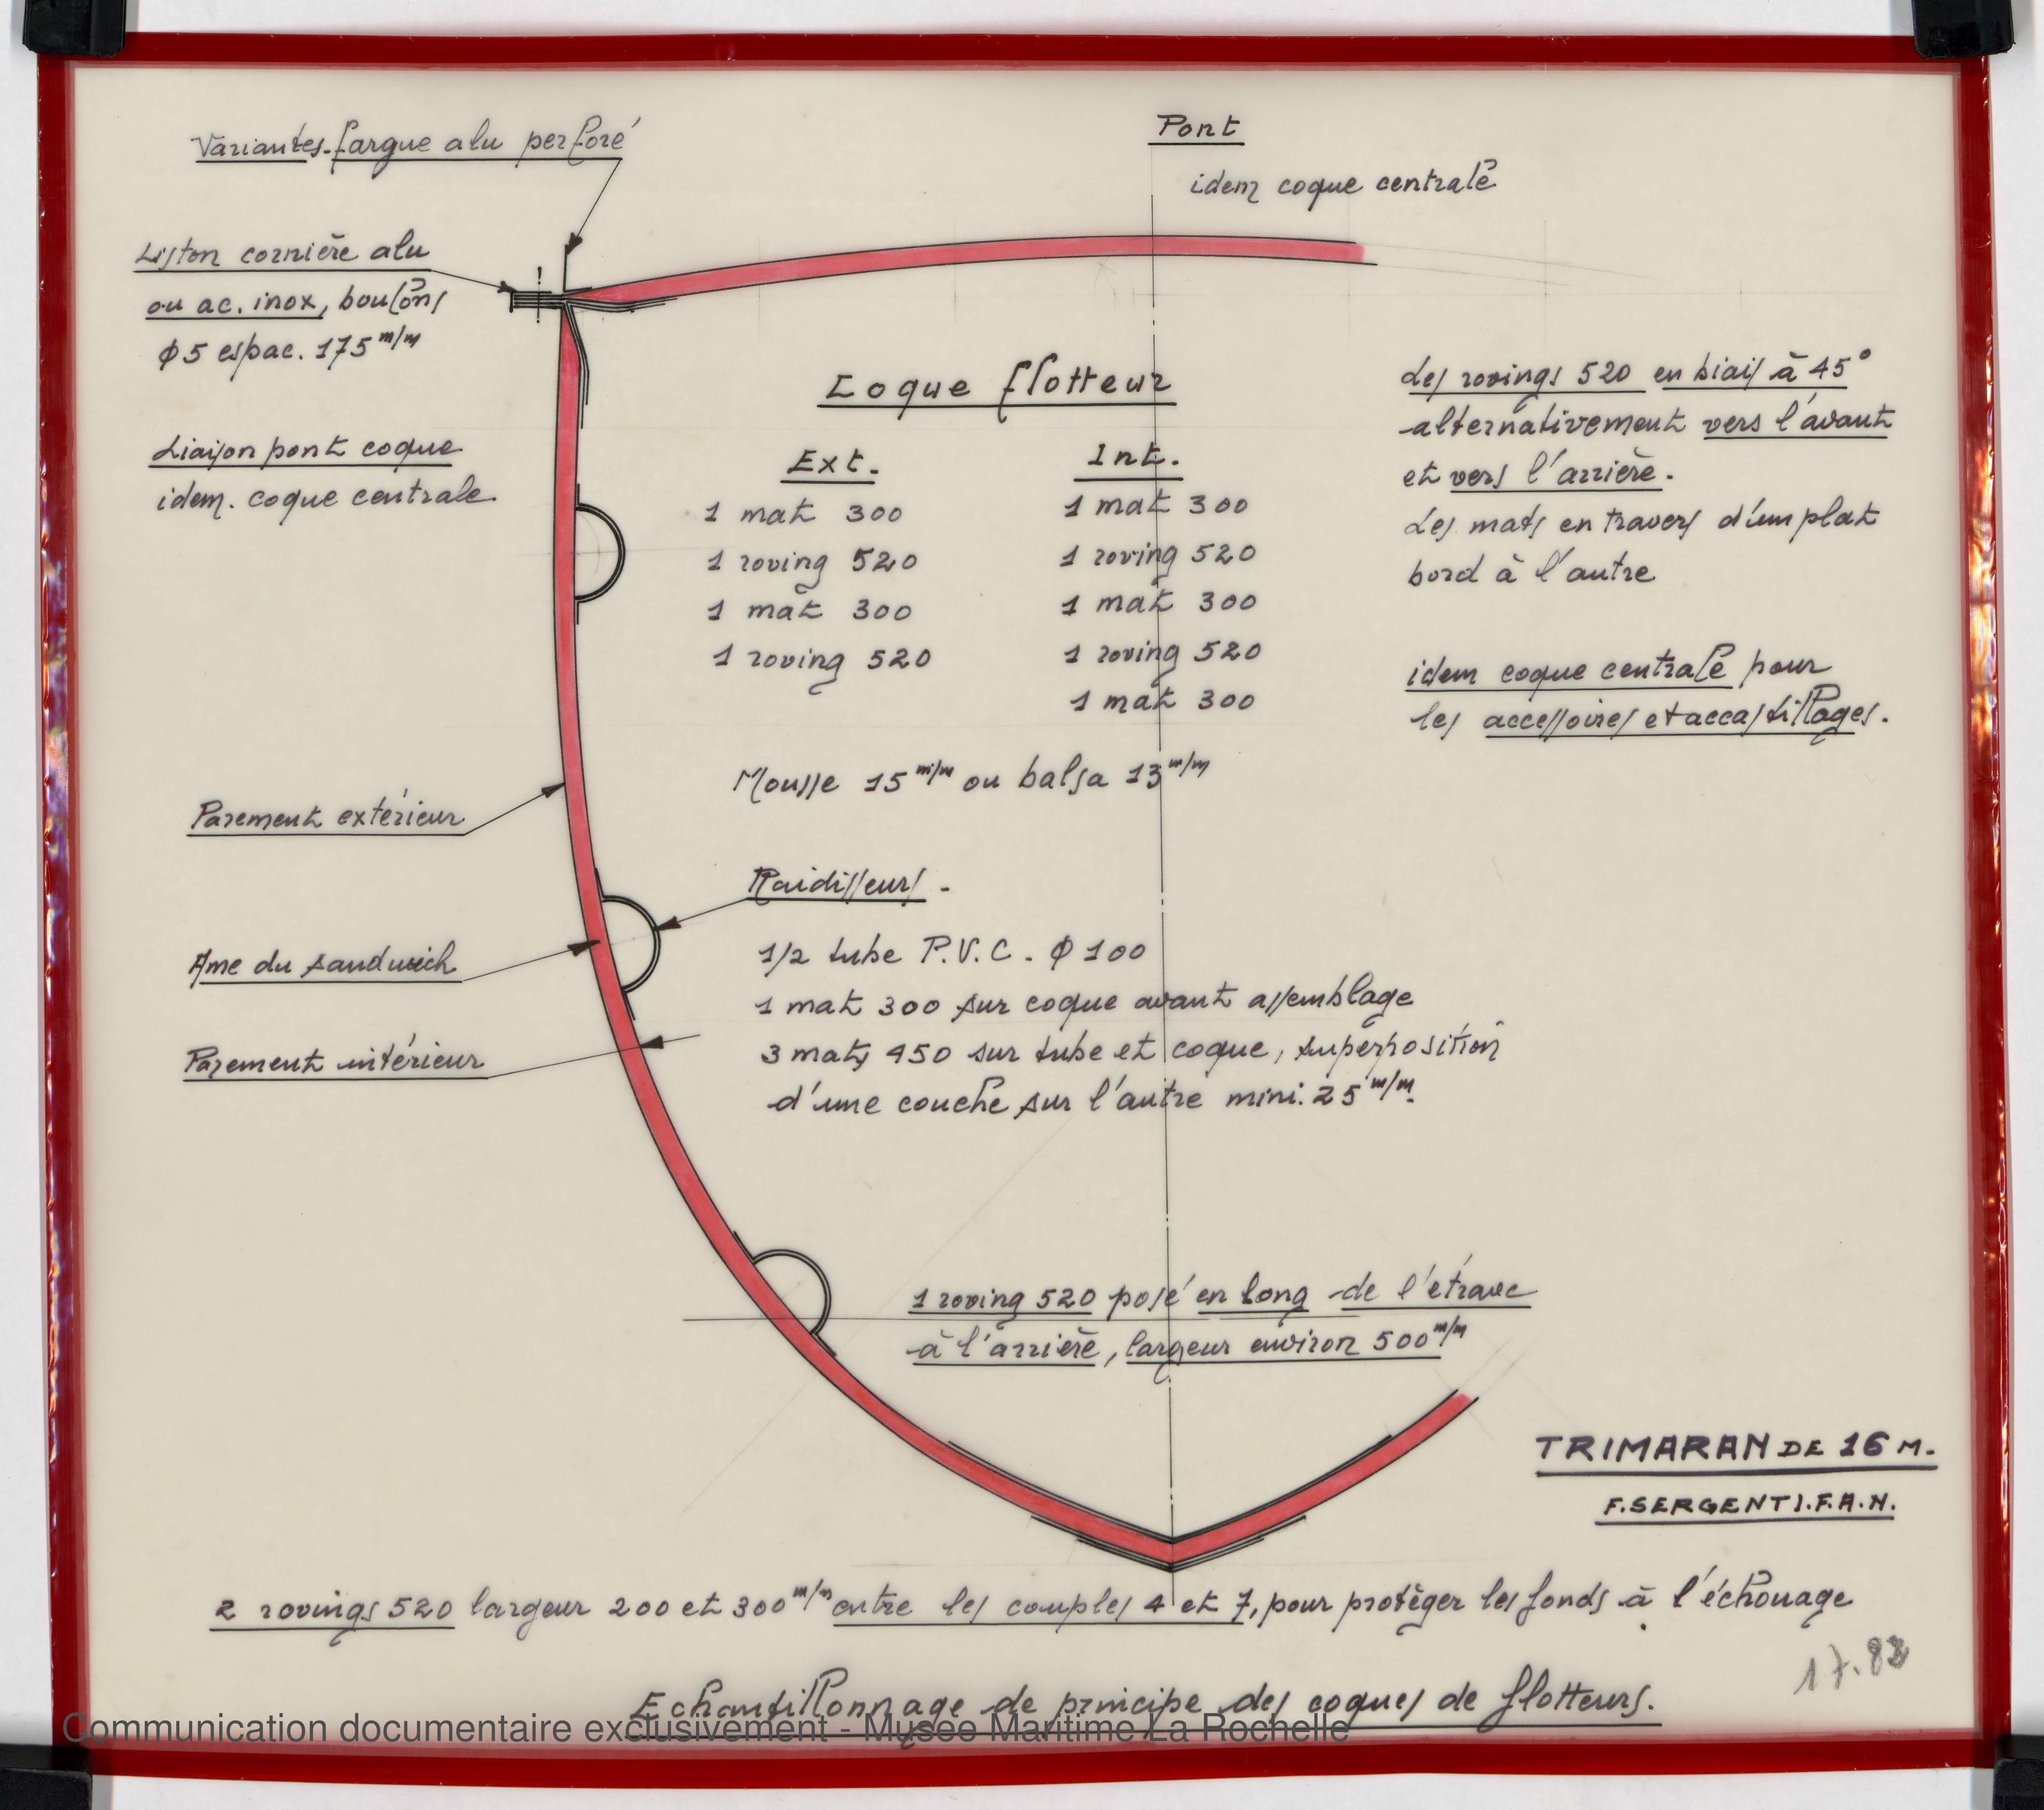 Variantes - fargue alu perforé
Pont
idem coque centrale
Liston cornière alu
ou ac. inox, boulons
ϕ5 espac. 175 m/m
Liaison pont coque
idem. coque centrale
Coque flotteur
Ext.
1 mat 300
1 roving 520
1 mat 300
1 roving 520
Int.
1 mat 300
1 roving 520
1 mat 300
1 roving 520
1 mat 300
Mousse 15 m/m ou balsa 13 m/m
Les rovings 520 en biais à 45°
alternativement vers l'avant
et vers l'arrière.
Les mats en travers d'un plat
bord à l'autre
idem coque centrale pour
les accessoires et accastillages.
Parement extérieur
Ame du sandwich
Parement intérieur
Raidisseurs.
1/2 tube P.V.C. ϕ 100
1 mat 300 sur coque avant assemblage
3 mats 450 sur tube et coque, superposition
d'une couche sur l'autre mini. 25 m/m.
1 roving 520 posé en long de l'étrave
à l'arrière, largeur environ 500 m/m
TRIMARAN DE 16 M.
F. SERGENT I.F.A.N.
2 rovings 520 largeur 200 et 300 m/m entre les couples 4 et 7, pour protèger les fonds à l'échouage
17.82
Echantillonnage de principe des coques de flotteurs.
Communication documentaire exclusivement - Musée Maritime La Rochelle